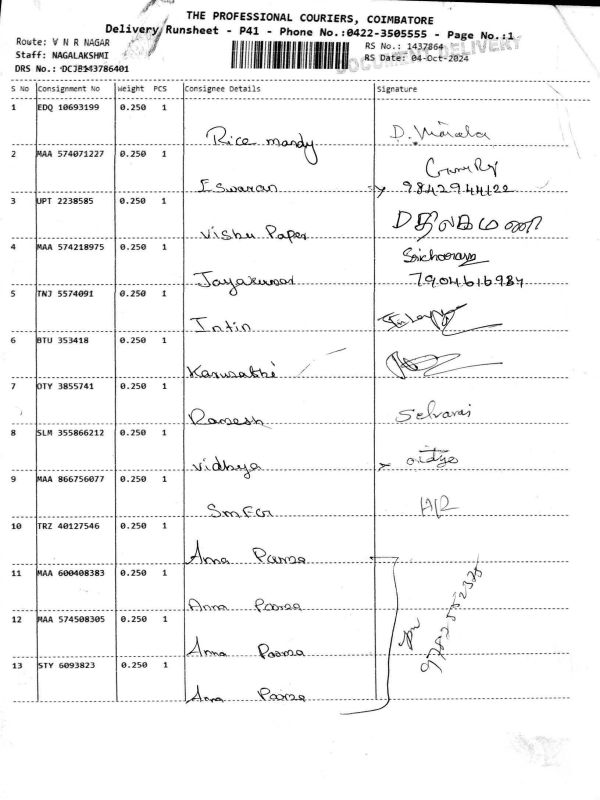 THE PROFESSIONAL COURIERS, COIMBATORE
Delivery Runsheet - P41 - Phone No.:0422-3505555 - Page No.:1
Route: V N R NAGAR
RS No.: 1437864
Staff: NAGALAKSHMI
RS Date: 04-Oct-2024
DOCUMENT DELIVERY
DRS No.: DCJB143786401
S No Consignment No Weight PCS Consignee Details Signature
1 EDQ 10693199 0.250 1
Rice mandy
2 MAA 574071227 0.250 1
Eswaran 9842944122
3 UPT 2238585 0.250 1
Vishu Paper
4 MAA 574218975 0.250 1
Jayakumar 7904616984
5 TNJ 5574091 0.250 1
Intin
6 BTU 353418 0.250 1
7 OTY 3855741 0.250 1
Ramesh Selvaraj
8 SLM 355866212 0.250 1
Vidhya
9 MAA 866756077 0.250 1
10 TRZ 40127546 0.250 1
Anna
11 MAA 600408383 0.250 1
Anna
12 MAA 574508305 0.250 1
Anna
13 STY 6093823 0.250 1
Anna